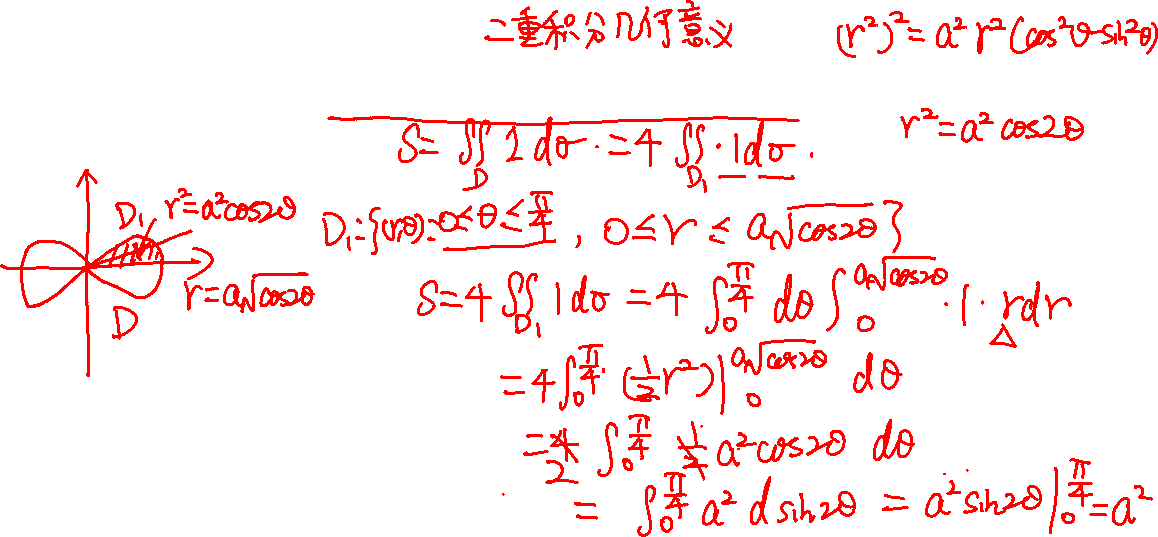 二重积分几何意义
(r²)² = a² r² (cos²θ - sin²θ)
r² = a² cos2θ
S = ∬_D 1 dσ. = 4 ∬_{D₁} · 1 dσ.
D₁ r² = a² cos2θ
D₁ = {(r,θ): 0 ≤ θ ≤ π/4, 0 ≤ r ≤ a√cos2θ}
r = a√cos2θ
D
S = 4 ∬_{D₁} 1 dσ = 4 ∫₀^{π/4} dθ ∫₀^{a√cos2θ} · 1 · r dr
△
= 4 ∫₀^{π/4} (½ r²) |₀^{a√cos2θ} dθ
= 4 2 ∫₀^{π/4} ½ a² cos2θ dθ
= ∫₀^{π/4} a² d sin2θ = a² sin2θ |₀^{π/4} = a²